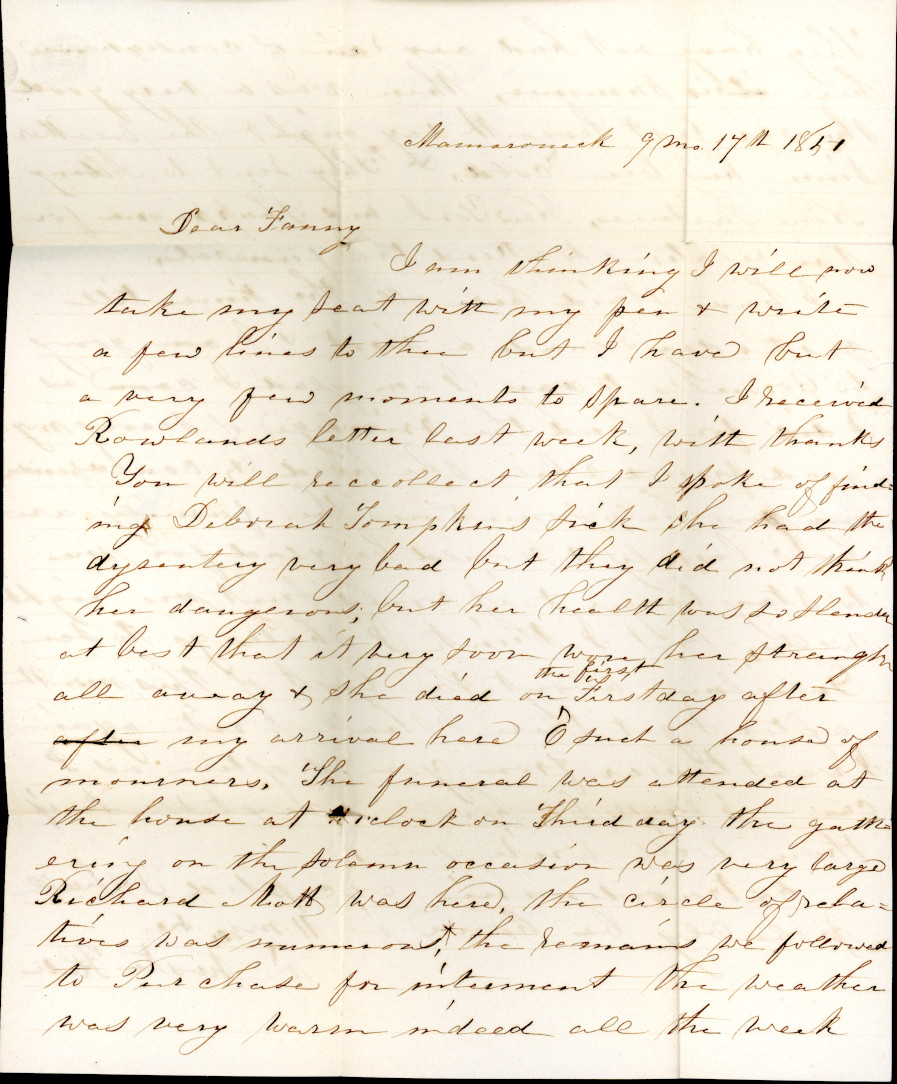 Mamaroneck 9 mo. 17th 1851
Dear Fanny
I am thinking I will now
take my seat with my pen & write
a few lines to thee but I have but
a very few moments to spare. I received
Rowlands letter last week, with thanks
You will reccollect that I spoke of find=
ing Deborah Tompkins sick she had the
dysentery very bad but they did not think
her dangerous; but her health was so slender
at best that it very soon wore her strength
the first
all away & she died on Firstday after
after my arrival here O such a house of
mourners. The funeral was attended at
the house at o'clock on Third day the gath=
ering on the solemn occasion was very large
Richard Mott was here, the circle of rela=
tives was numerous, the remains we followed
to Purchase for interment the weather
was very warm indeed all the week